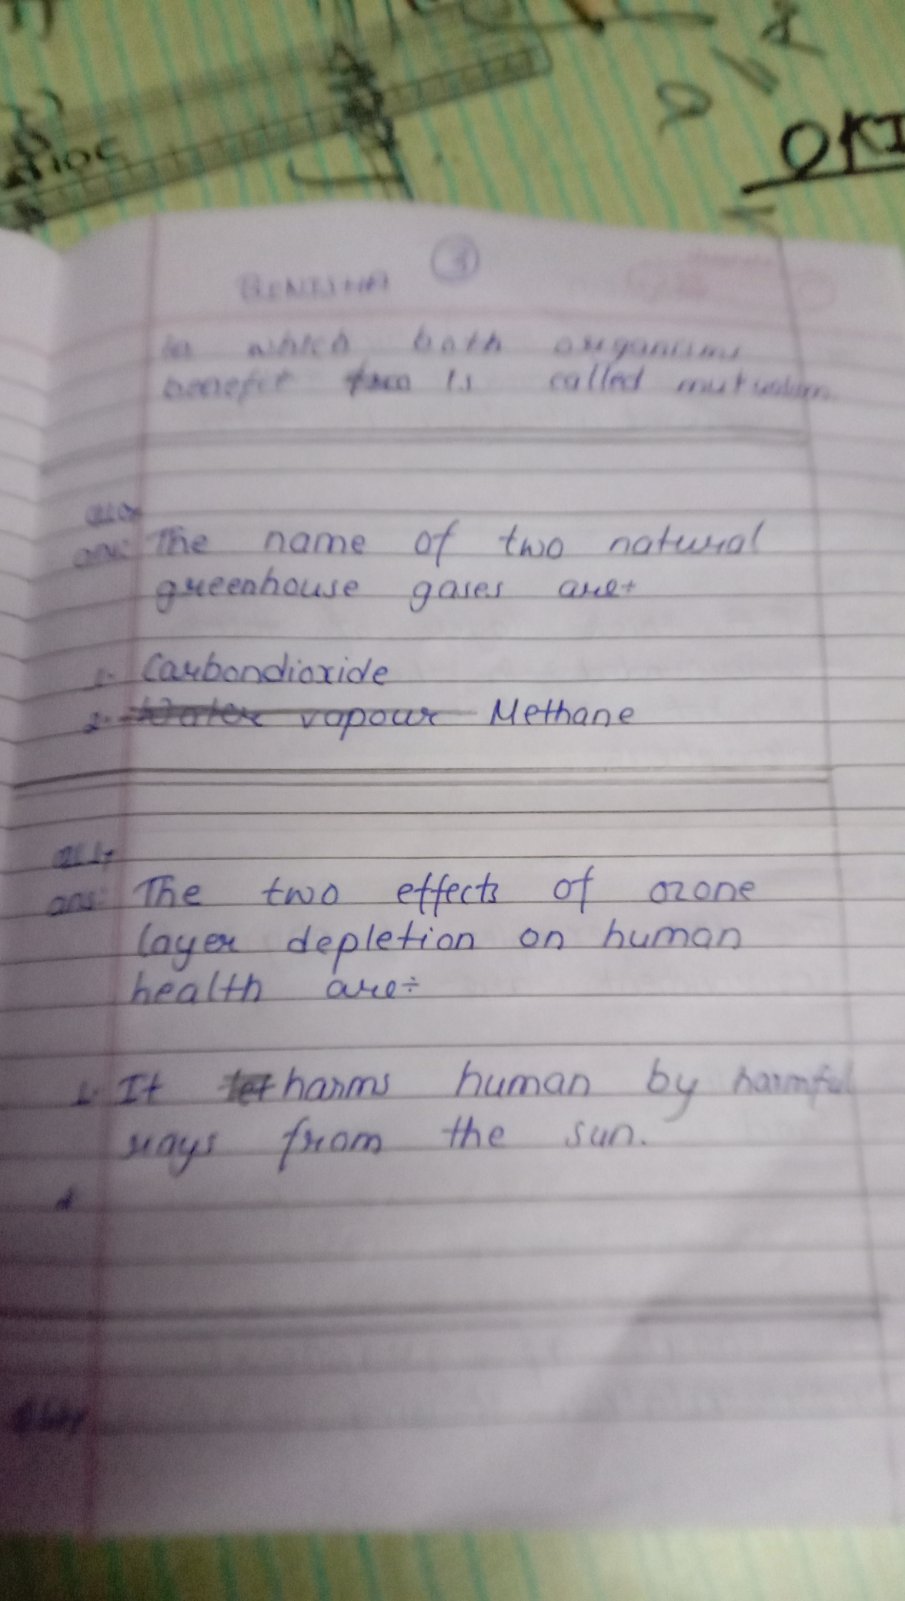 OKI
3
in which both organisms
benefit is called mutualism
ans: The name of two natural
greenhouse gases are÷
1. Carbondioxide
2. Water vapour Methane
ans: The two effects of ozone
layer depletion on human
health are÷
1. It harms human by harmful
rays from the sun.